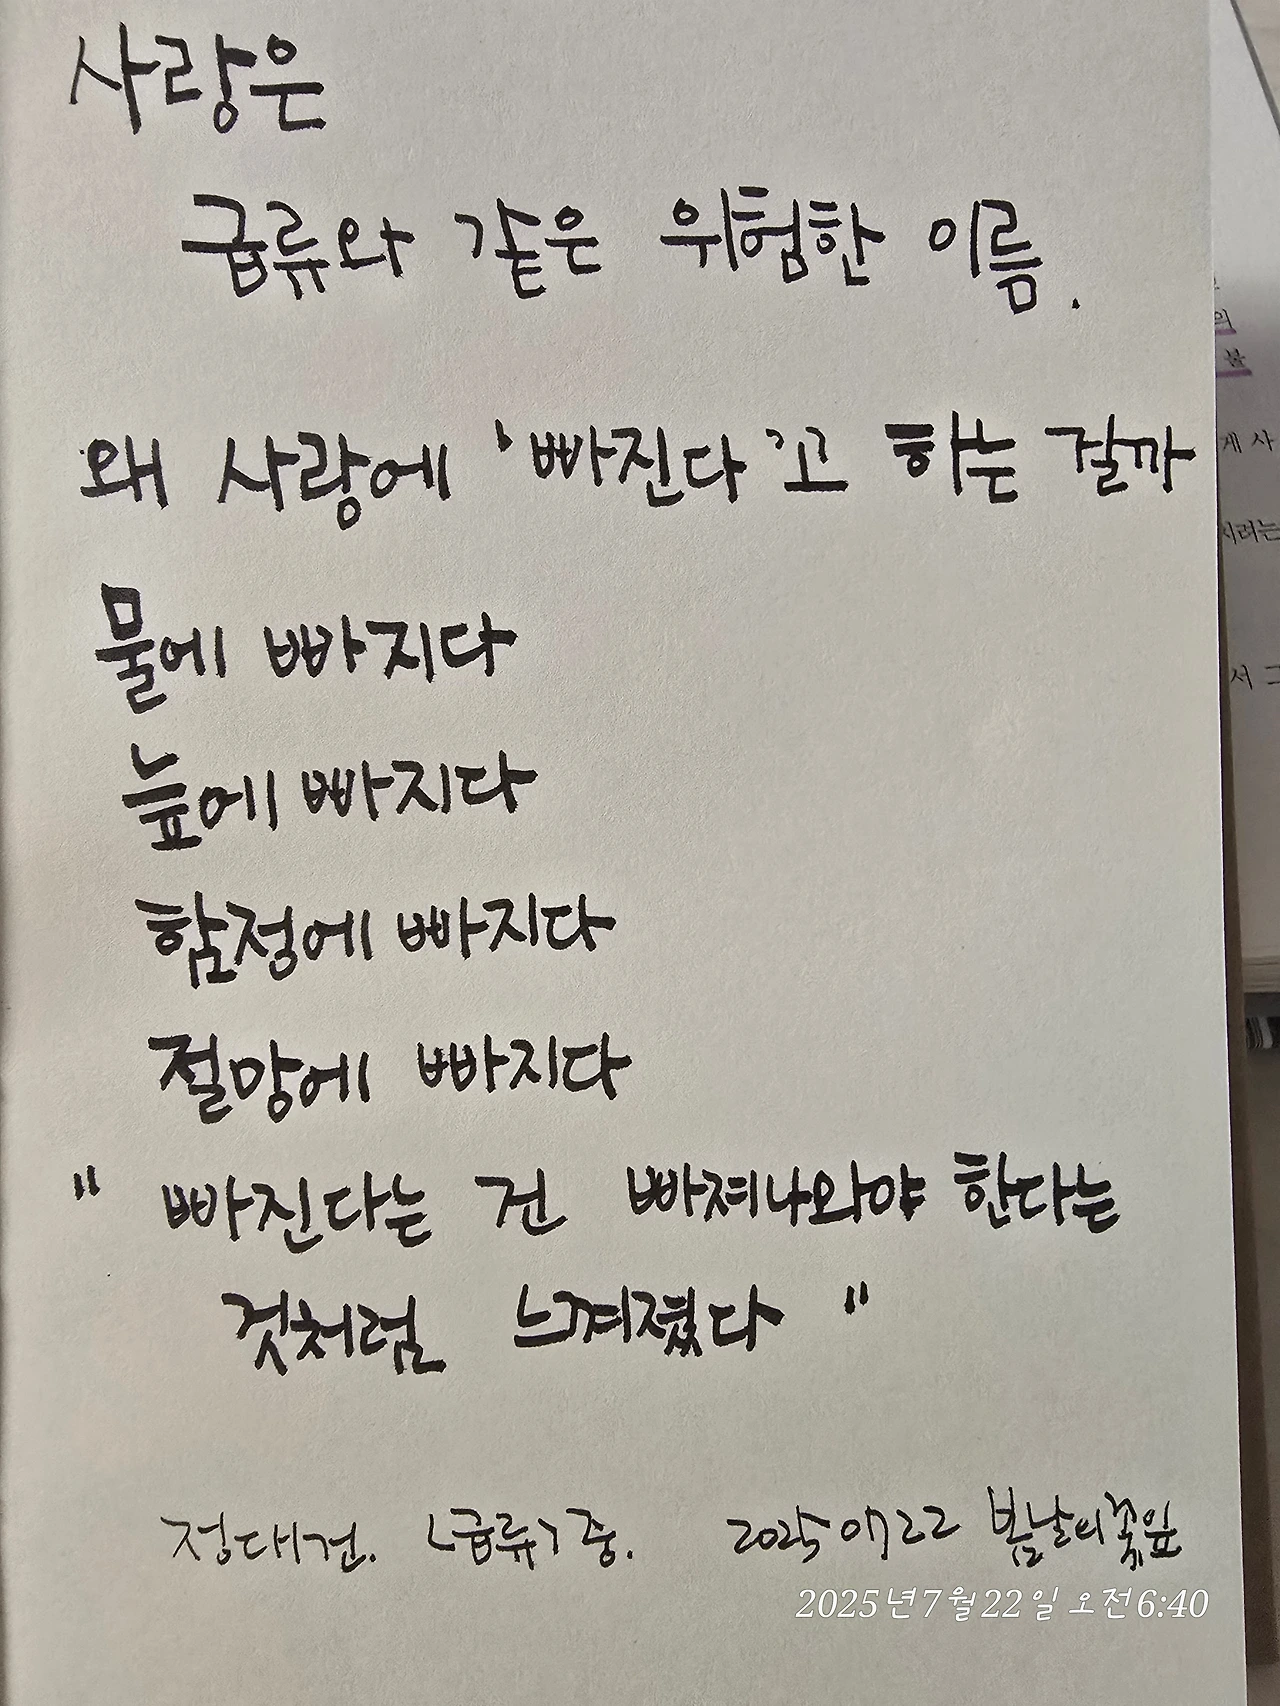 사랑은
급류와 같은 위험한 이름.
왜 사랑에 '빠진다'고 하는 걸까
물에 빠지다
늪에 빠지다
함정에 빠지다
절망에 빠지다
" 빠진다는 건 빠져나와야 한다는
것처럼 느껴졌다 "
정대건. <급류> 중. 2025 07 22 봄날의꽃잎
2025년 7월 22일 오전 6:40
의
불
게 사
시려는
서 그